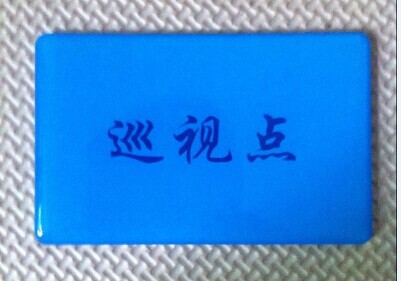 巡视点